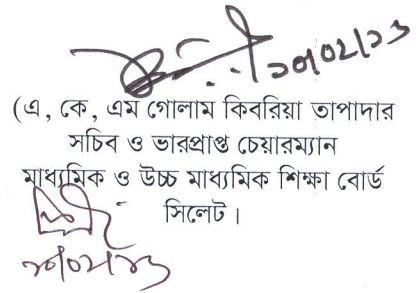 ২০/০২/২৩
(এ, কে, এম গোলাম কিবরিয়া তাপাদার
সচিব ও ভারপ্রাপ্ত চেয়ারম্যান
মাধ্যমিক ও উচ্চ মাধ্যমিক শিক্ষা বোর্ড
সিলেট।